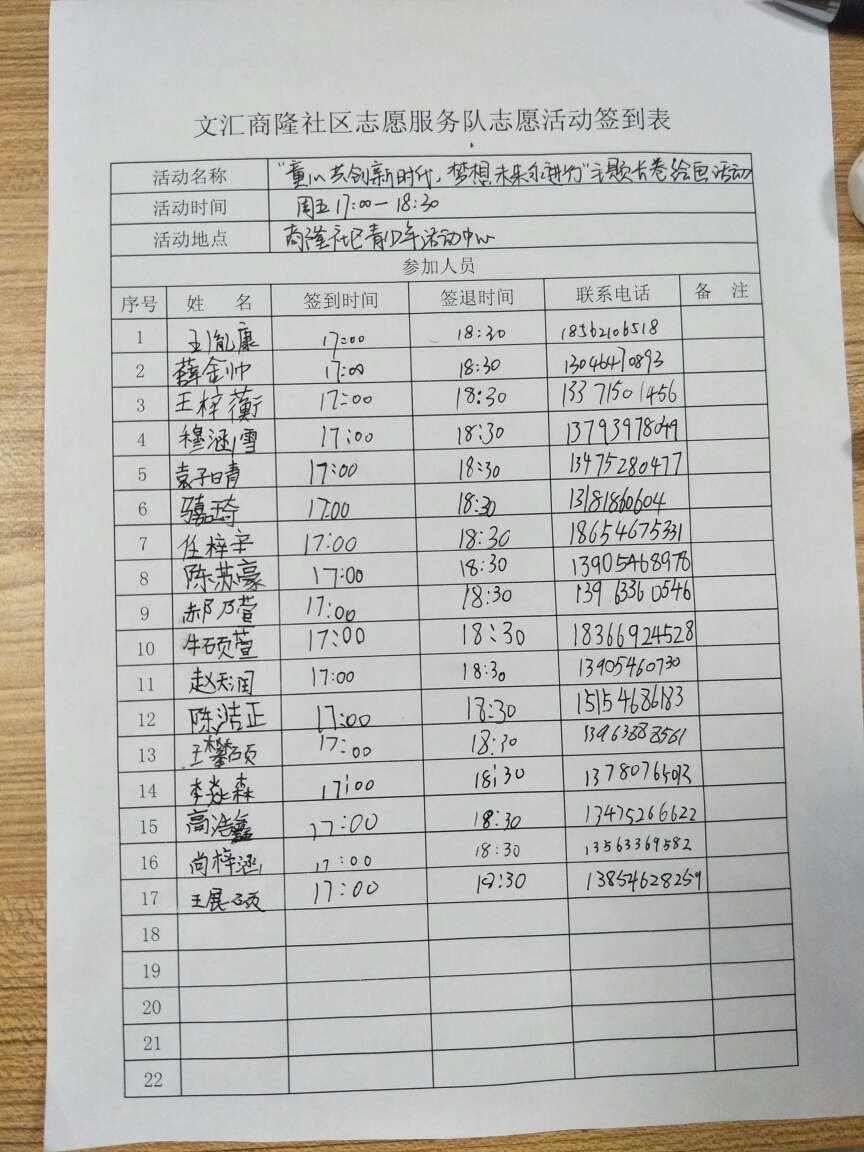 文汇商隆社区志愿服务队志愿活动签到表
活动名称 "童心共创新时代，梦想未来尔进行"主题长卷绘画活动
活动时间 周五17:00—18:30
活动地点 商隆社区青少年活动中心
参加人员
序号 姓 名 签到时间 签退时间 联系电话 备 注
1 王胤康 17:00 18:30 18562106518
2 薛金帅 17:00 18:30 13046470893
3 王梓蘅 17:00 18:30 13371501456
4 穆涵雪 17:00 18:30 13793978049
5 袁子晴 17:00 18:30 13475280477
6 17:00 18:30 13181860604
7 任梓辛 17:00 18:30 18654675331
8 陈苏豪 17:00 18:30 13905468978
9 郝乃萱 17:00 18:30 13963360546
10 牛硕萱 17:00 18:30 18366924528
11 赵天润 17:00 18:30 13905460730
12 陈洁正 17:00 18:30 15154686183
13 王攀硕 17:00 18:30 13963888561
14 李焱森 17:00 18:30 13780765013
15 高浩鑫 17:00 18:30 13475266622
16 尚梓涵 17:00 18:30 13563369582
17 王展硕 17:00 18:30 13854628259
18
19
20
21
22